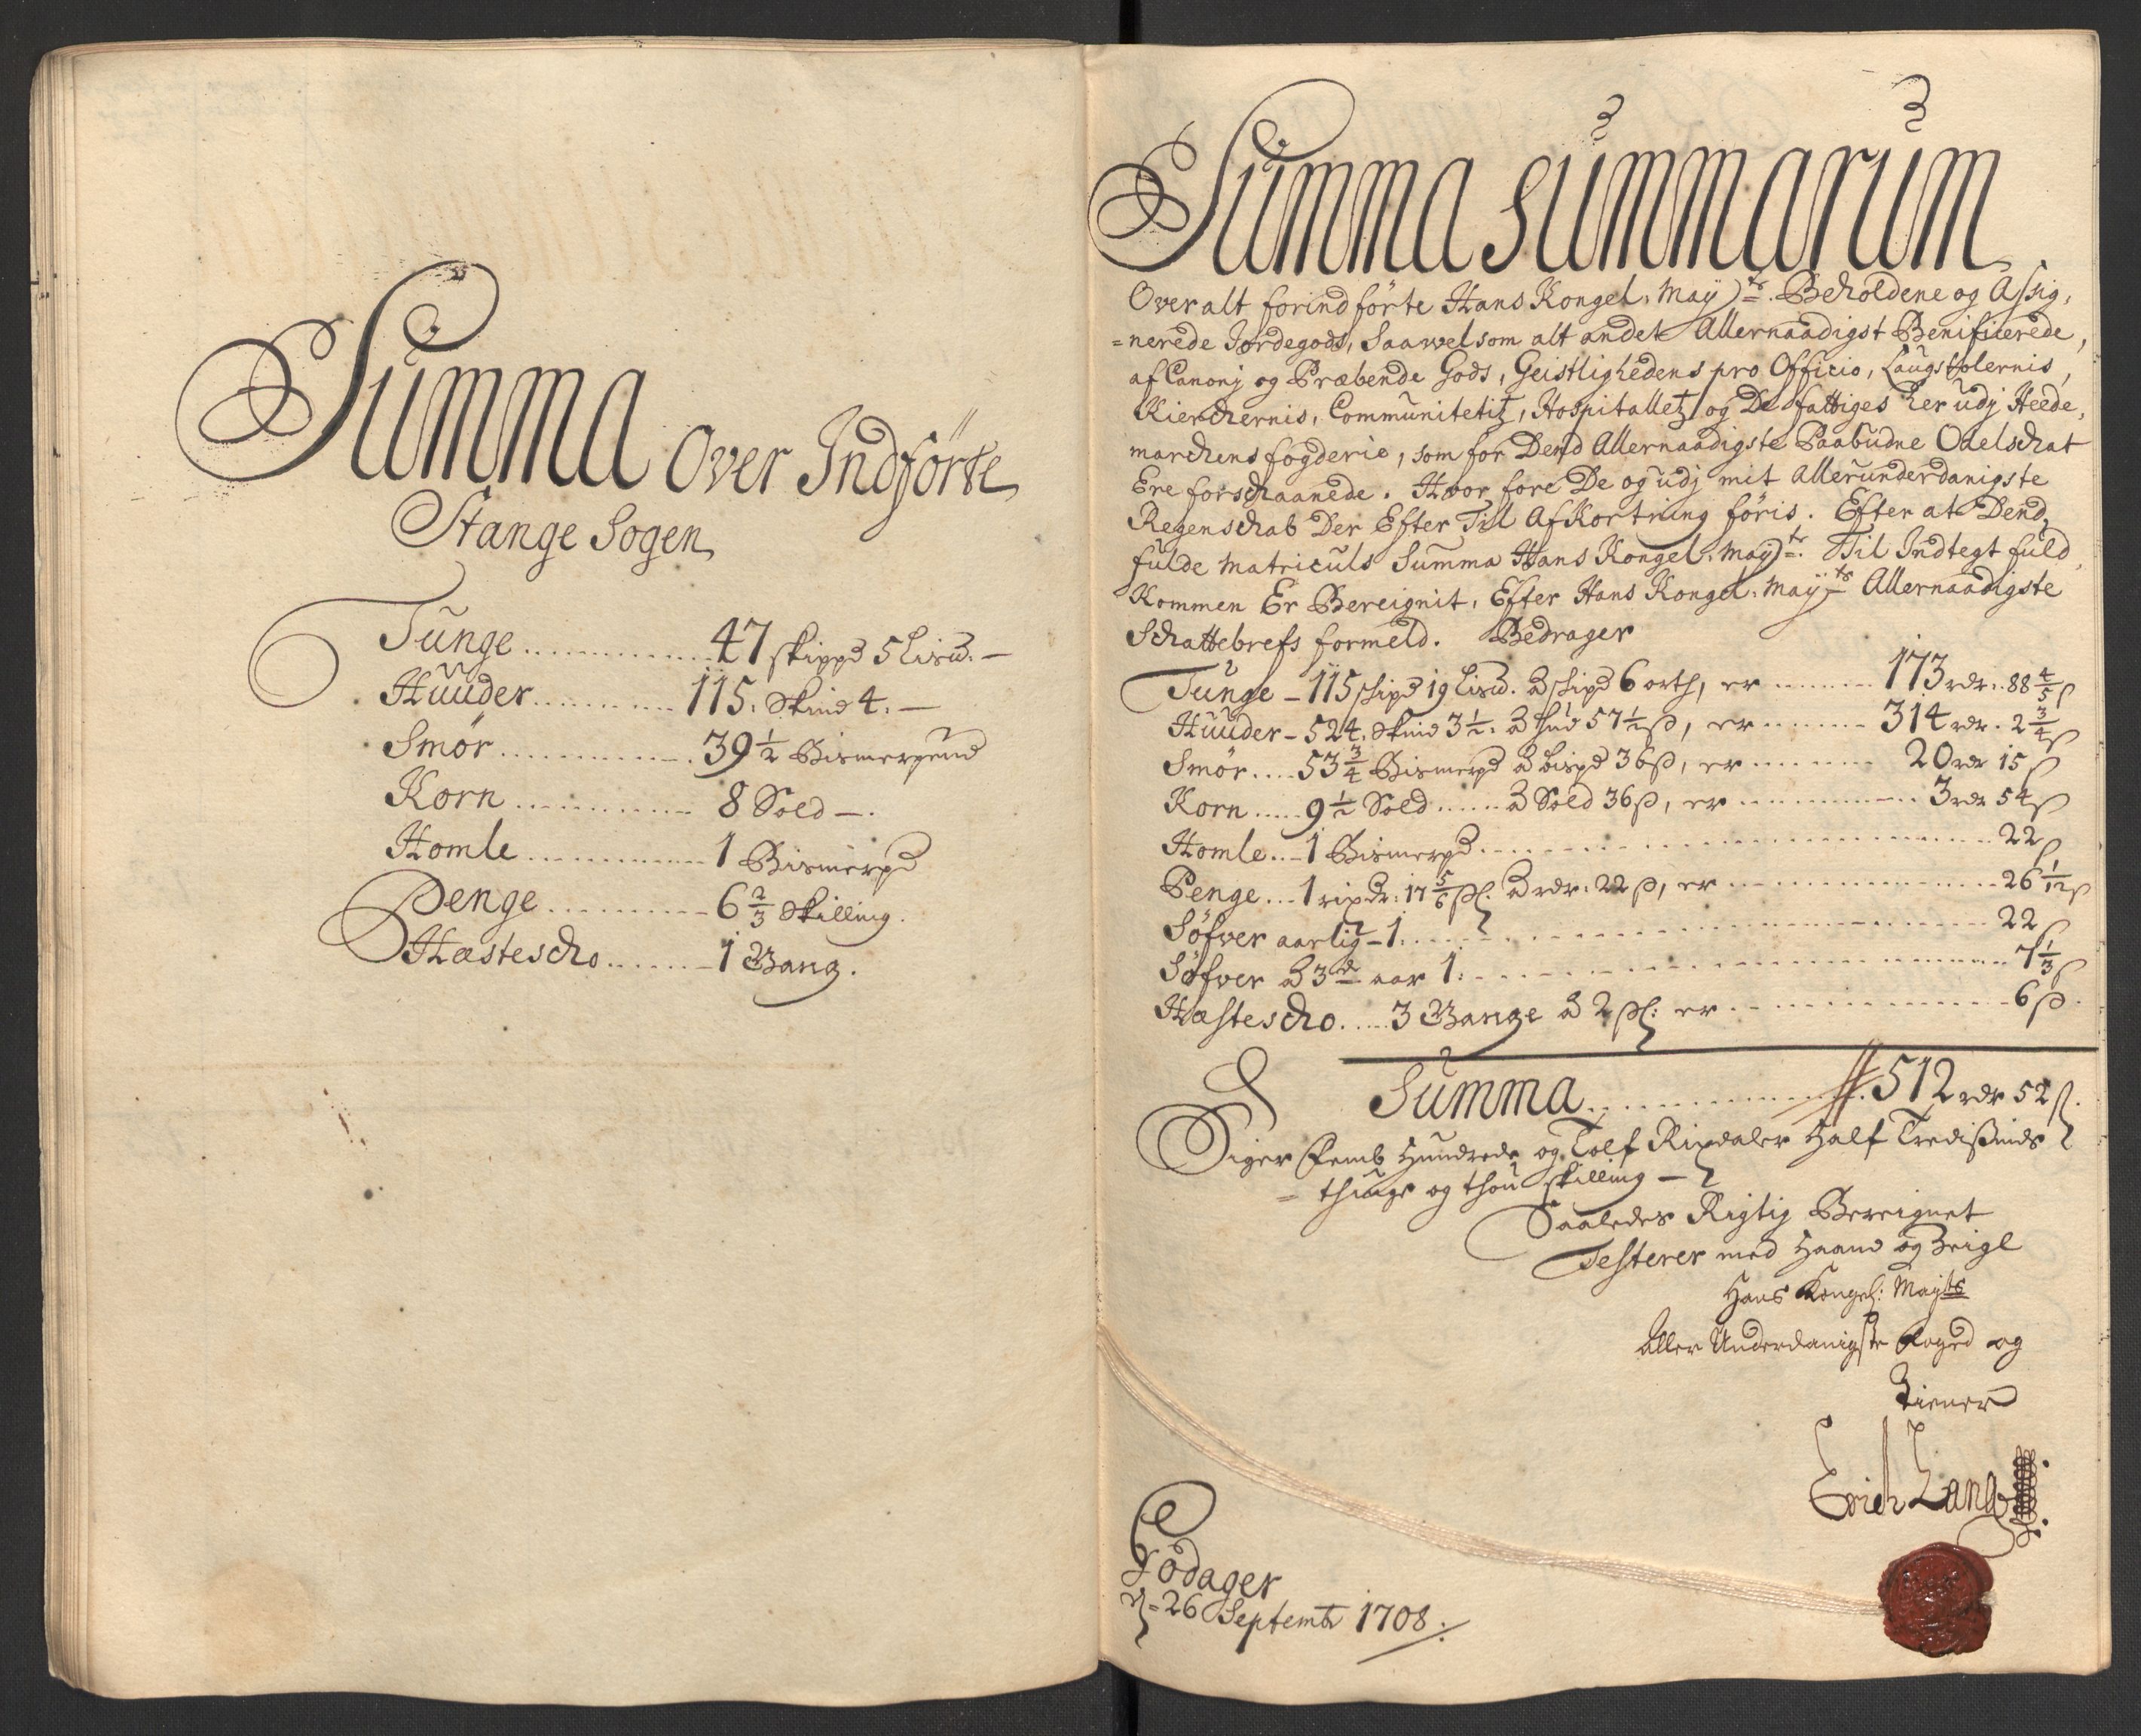 Summa Over Indförte
Stange Sogen
Tunge ............ 47 skippd 5 Lisu. —
Huuder ......... 115. Skind 4. —
Smör ............ 39 1/2 Bismerpund
Korn ............ 8 Sold —.
Homle ............ 1 Bismerpd
Penge ......... 6 2/3 Skilling.
Hæstescho ....... 1 Gang.
Summa Summarum
Over alt forindförte Hans Kongel. Maÿts. Beholdene og Assig,
=nerede Jordegods, Saavelsom alt andet Allernaadigst Benificerede,
af Canonj og Præbende Gods, Geistlighedens pro Officio, Laugstolernis,
Kierchernis, Communitetitz, Hospitalletz og De fattiges her udj Heede,
marchens fogderie, som for Dend Allernaadigste Paabudne Odelschat
Ere forschaanede. Hvor fore De og udj mit Allerunderdanigste
Regenschab Der Efter Til Afkortning föris. Efter at Dend
fulde Matriculs Summa Hans Kongel. Maÿts. Til Indtegt fuld,
Kommen Er Bereignit, Efter Hans Kongel. Maÿts Allernaadigste
Schattebrefs formeld. Bedrager
Tunge – 115 schipd 19 Lisu. à schipd 6 orth, er ....... 173 rdr. 88 4/5 ß
Huuder – 524. Skind 3 1/2. à hud 57 1/2 ß, er ...... 314 rdr. 2 3/4 ß
Smör .... 53 3/4 Bismerpd à bispd 36 ß, er ....... 20 rdr 15 ß
Korn ..... 9 1/2 Sold ..... à Sold 36 ß, er ........... 3 rdr 54 ß
Homle ... 1 Bismerpd ............ 22 ß
Penge ... 1 rixdr: 17 5/6 ßl. à rdr. 22 ß, er ............ 26 1/12 ß
Söfver aarlig – 1. ............ 22 ß
Söfver à 3de aar 1. ............ 7 1/3 ß
Hæstescho ..... 3 Gange à 2 ßl: er ............ 6 ß.
Summa ............ 512 rdr 52 ß.
Siger Femb Hundrede og Tolf Rixdaler Half Tredisinds
= thiuge og thou skilling —
Saaledes Rigtig Bereignet
Testerer med Haand og Zeigl
Hans Kongel: Mayts
Aller Underdanigste Foged og
Tiener
Erich Zanb
Godager
d. 26 Septembr 1708.